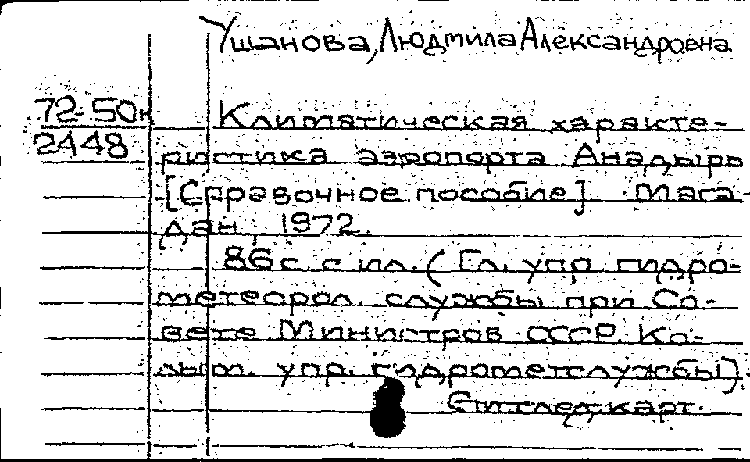 Ушанова, Людмила Александровна
72-50н
2448
Климатическая характе-
ристика аэропорта Анадырь
[Справочное пособие]. Мага-
дан, 1972.
86 с. с ил. (Гл. упр. гидро-
метеорол. службы при Со-
вете Министров СССР. Ко-
лым. упр. гидрометслужбы).
карт.